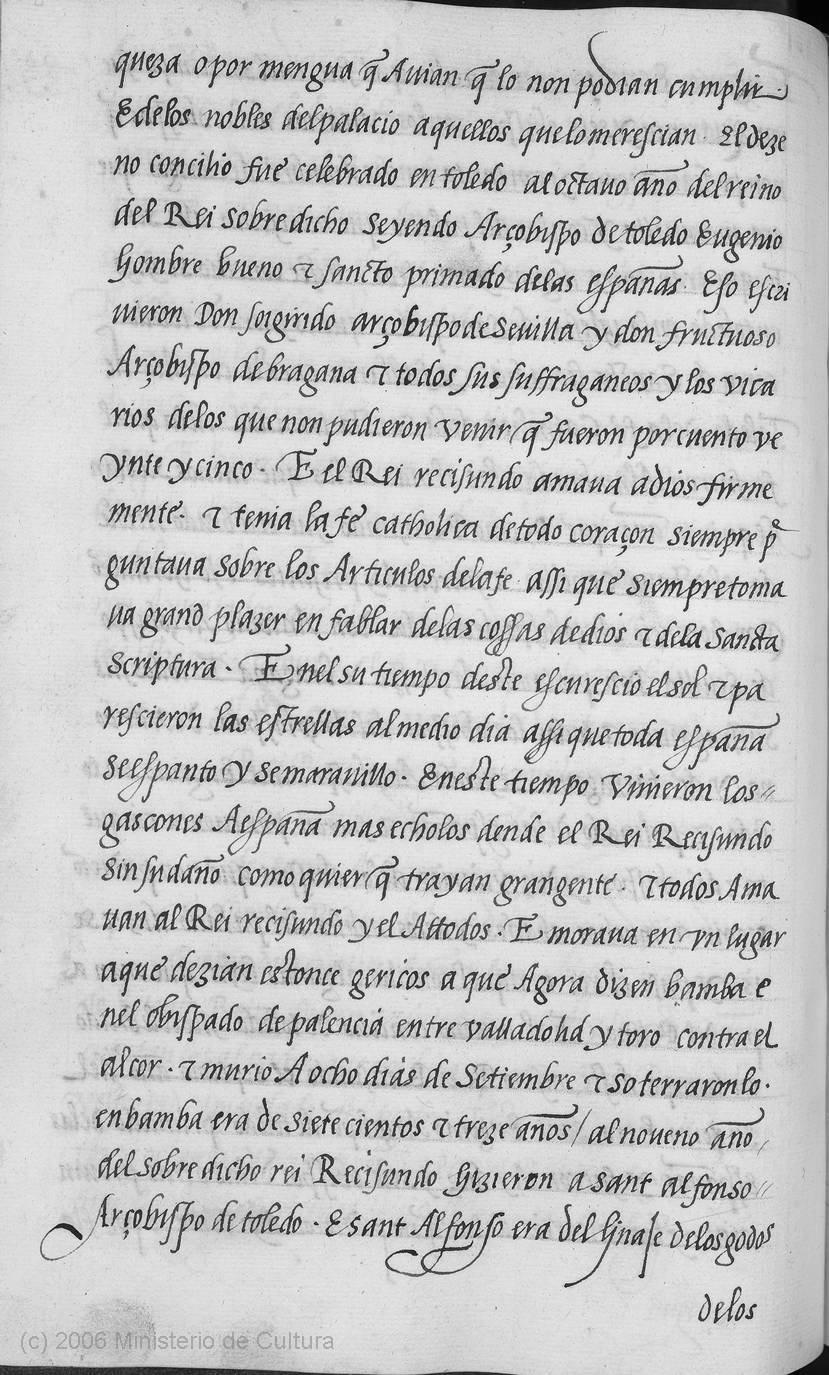 queza o por mengua q̃ Auian q̃ lo non podian cumplir ·
E delos nobles del palacio aquellos que lo merescian · El deze
no concilio fue celebrado en toledo al octauo año del reino
del Rei sobre dicho seyendo Arçobispo de toledo Eugenio
hombre bueno τ sancto primado delas españas · Eso escri
uieron Don soigirido arçobispo de Sevilla y don fructuoso
Arçobispo de bragana τ todos sus suffraganeos y los vica
rios delos que non pudieron venir / q̃ fueron por cuento ve
ynte y cinco · E el Rei recisundo amaua a dios firme
mente · τ tenia la fe catholica de todo coraçon siempre p̃
guntaua sobre los Articulos dela fe assi que siempre toma
ua grand plazer en fablar delas cossas de dios τ dela sancta
scriptura · E nel su tiempo deste escurescio el sol τ pa
rescieron las estrellas al medio dia assi que toda españa
se espanto y se marauillo · E neste tiempo vinieron los
gascones A españa mas echolos dende el Rei Recisundo
sin su daño como quier q̃ trayan gran gente · τ todos Ama
uan al Rei recisundo y el A ttodos · E moraua en vn lugar
a que dezian estonce gericos a que Agora dizen bamba e
nel obispado de palencia entre valladolid y toro contra el
alcor · τ murio A ocho dias de Setiembre τ soterraronlo ·
en bamba era de siete cientos τ treze años / al noueno año
del sobre dicho rei Recisundo hizieron a sant alfonso
Arçobispo de toledo · E sant Alfonso era del linaje delos godos
delos
(c) 2006 Ministerio de Cultura